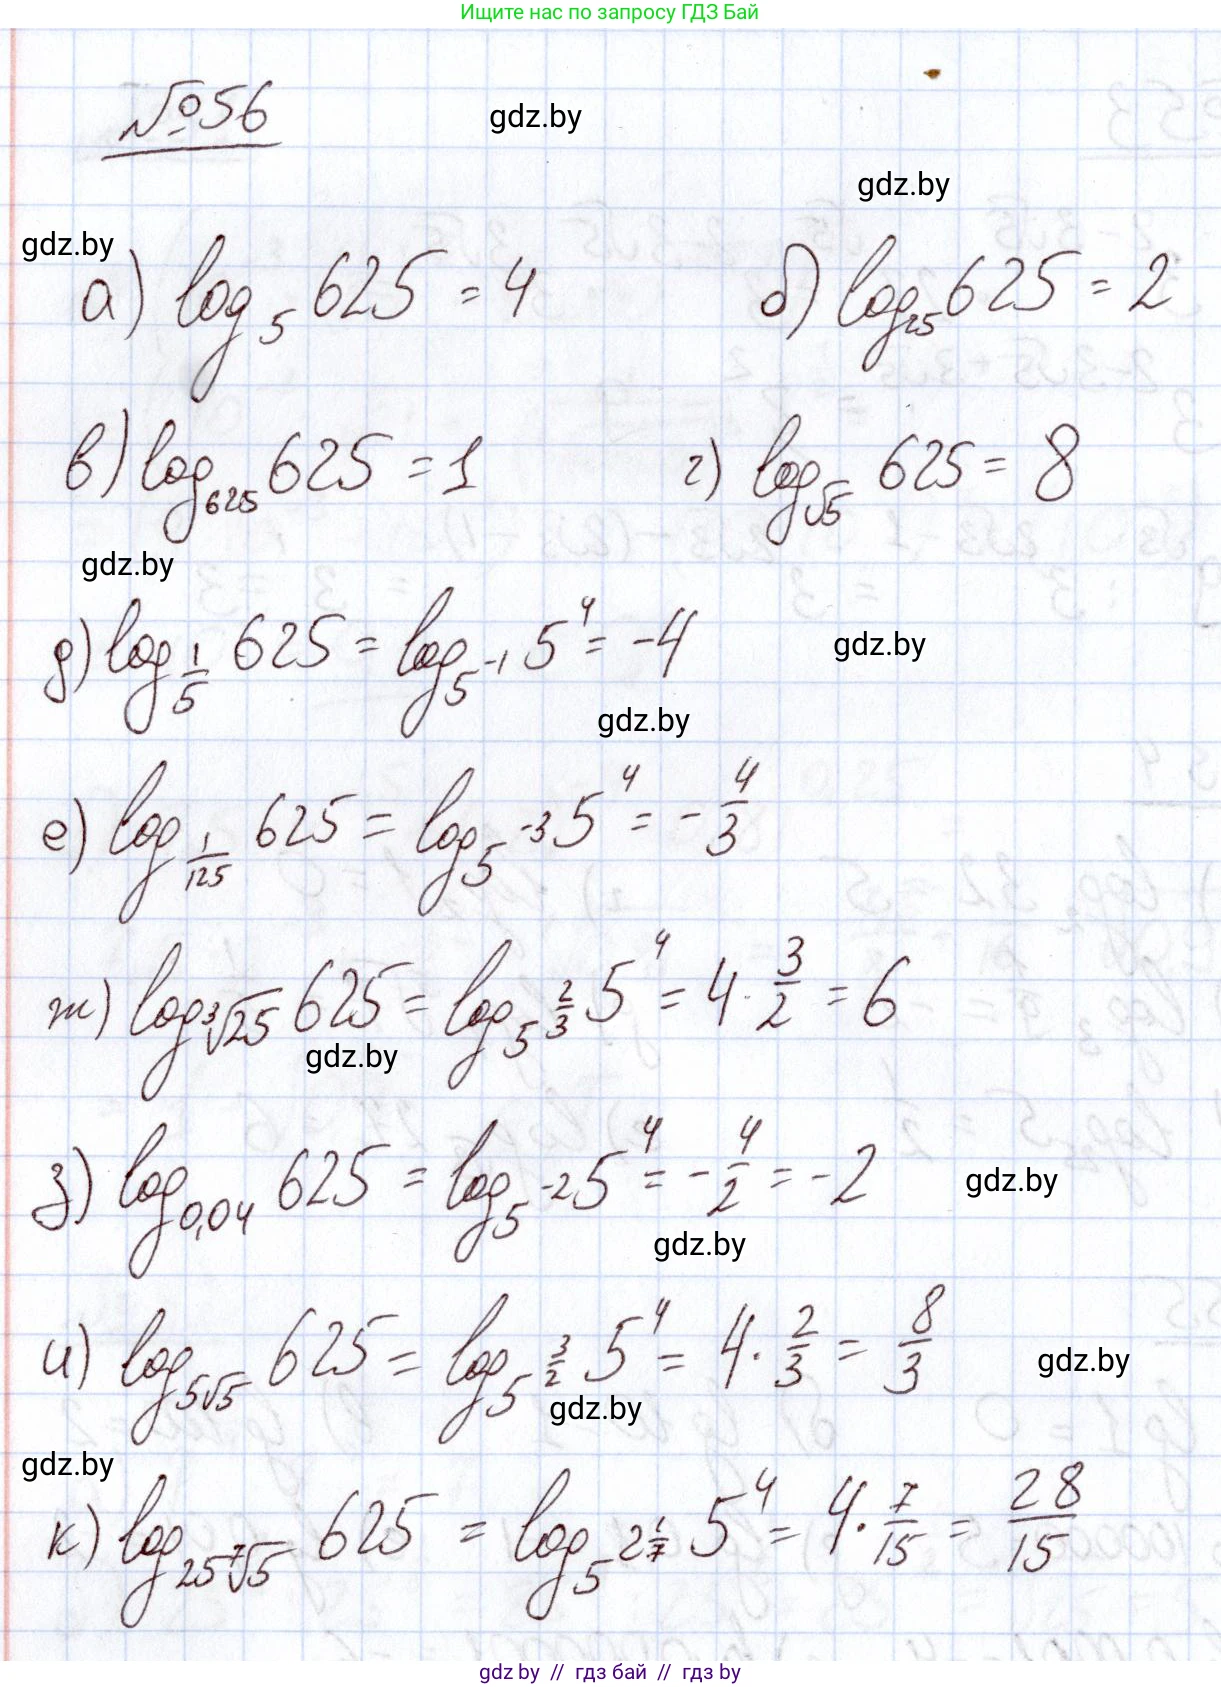 Ищите нас по запросу ГДЗ Бай
№56
gdz.by
gdz.by
gdz.by
а) log₅ 625 = 4
б) log₂₅ 625 = 2
в) log₆₂₅ 625 = 1
г) log_√5 625 = 8
gdz.by
д) log_1/5 625 = log_5⁻¹ 5⁴ = -4
gdz.by
gdz.by
е) log_1/125 625 = log_5⁻³ 5⁴ = -4/3
ж) log_∛25 625 = log_5^2/3 5⁴ = 4 · 3/2 = 6
gdz.by
з) log_0,04 625 = log_5⁻² 5⁴ = -4/2 = -2
gdz.by
gdz.by
и) log_5√5 625 = log_5^3/2 5⁴ = 4 · 2/3 = 8/3
gdz.by
gdz.by
gdz.by
к) log_25⁷√5 625 = log_5^2 1/7 5⁴ = 4 · 7/15 = 28/15
gdz.by // гдз бай // гдз by